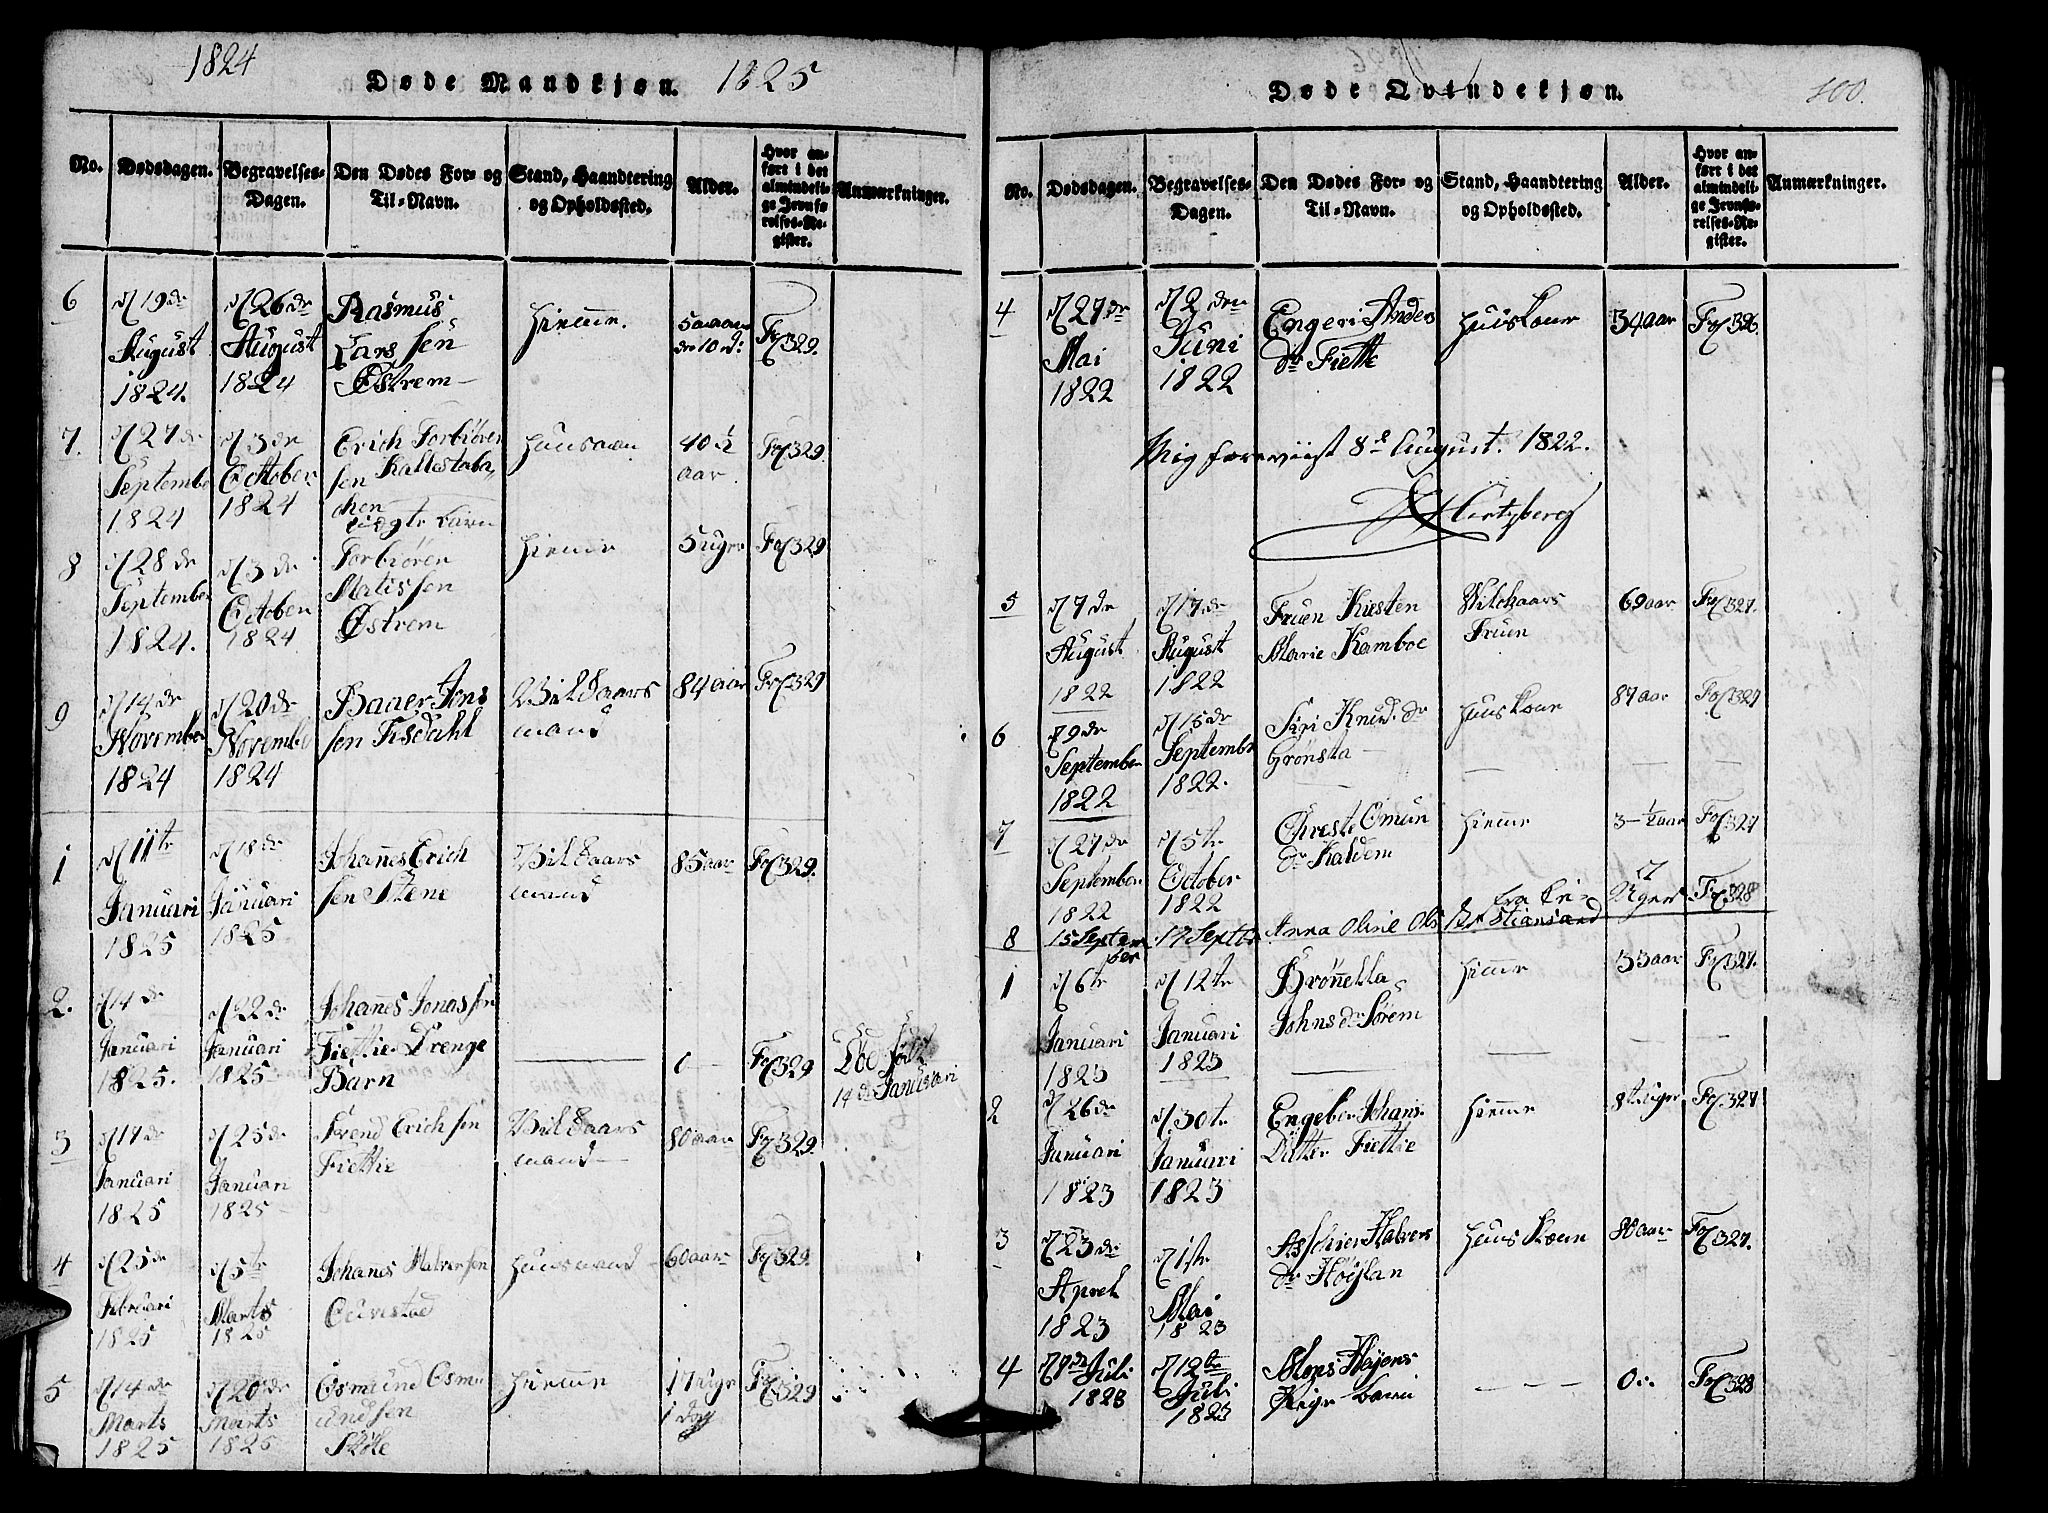 1824
Døde Mandkjøn. 1825
No. Dødsdagen. Begravelses-Dagen. Den Dødes For- og Til-Navn. Stand, Haandtering og Opholdssted. Alder. Hvor anført i det almindelige Jevnførelses-Register. Anmærkninger.
6 19de August 1824. 26de August 1824 Rasmus Larssen Østrem Hiemme. Fo 329.
7. 27de September 1824 3de October 1824 Erich Torbiørensen Huusmand 40 ½ aar Fo 329.
8 28de September 1824. 3de October 1824. Torbiøren Matissen Østrem Hiemme 5 uger Fo 329
9 14de November 1824 20de November 1824 Baaer Jonssen Tisdahl Vilkaarsmand 84 aar Fo 329
1 11te Januari 1825 18de Januari 1825 Johannes Erichsen Stene Vilkaarsmand 85 aar Fo 329.
2. 14de Januari 1825. 22de Januari 1825 Johanes Jonassen Fiettie Drenge Barn 0 Fo 329 Død født 14de Januari
3 17de Januari 1825 25de Januari 1825 Trend Erichsen Fiettie Vilkaarsmand 80 aar Fo 329.
4 25de Februari 1825 5te Marts 1825 Johanes Halversen Huusmand 60 aar Fo 329.
5 14de Marts 1825 20de Marts 1825 Osmund Osmundsen Hiemme 17 uger 1 dag Fo 329
Døde Qvindekjøn. 100.
No. Dødsdagen. Begravelses-Dagen. Den Dødes For- og Til-Navn. Stand, Haandtering og Opholdssted. Alder. Hvor anført i det almindelige Jevnførelses-Register. Anmærkninger.
4 27de Mai 1822 2den Juni 1822 Engeri Anders dr Fiette Huuskone 34 aar Fo 326.
Mig foreviist 8de August. 1822.
Hertzberg
5 7de August 1822 17de August 1822 Fruen Kiesten Marie Kamboe Vilckaars Fruen 69 aar Fo 327.
6 9de September 1822 15de September 1822. Siri Knud. dr Grønsta Huuskone 87 aar Fo 327
7 27de September 1822 5te October 1822 Christe Omun dr Haldem Hiemme 3 ½ aar Fo 327
8 15 September 17 Septbr Anna Oline Ols dr fra Cristiansand Uger Fo 328
1 6te Januari 1823 12te Januari 1823 Brønella Johns dr Sørem Hiemme 33 aar Fo 327.
2 26de Januari 1823 30te Januari 1823 Engebor Johans Datter Fiettie Hiemme 8 uger Fo 327
3 23de Apreli 1823 1ste Mai 1823 Halvors dr Høylan Huus Kone 80 aar Fo 327.
4 7de Juli 1823 12te Juli 1823 Mons Hayons Pige Barn 0 Fo 328